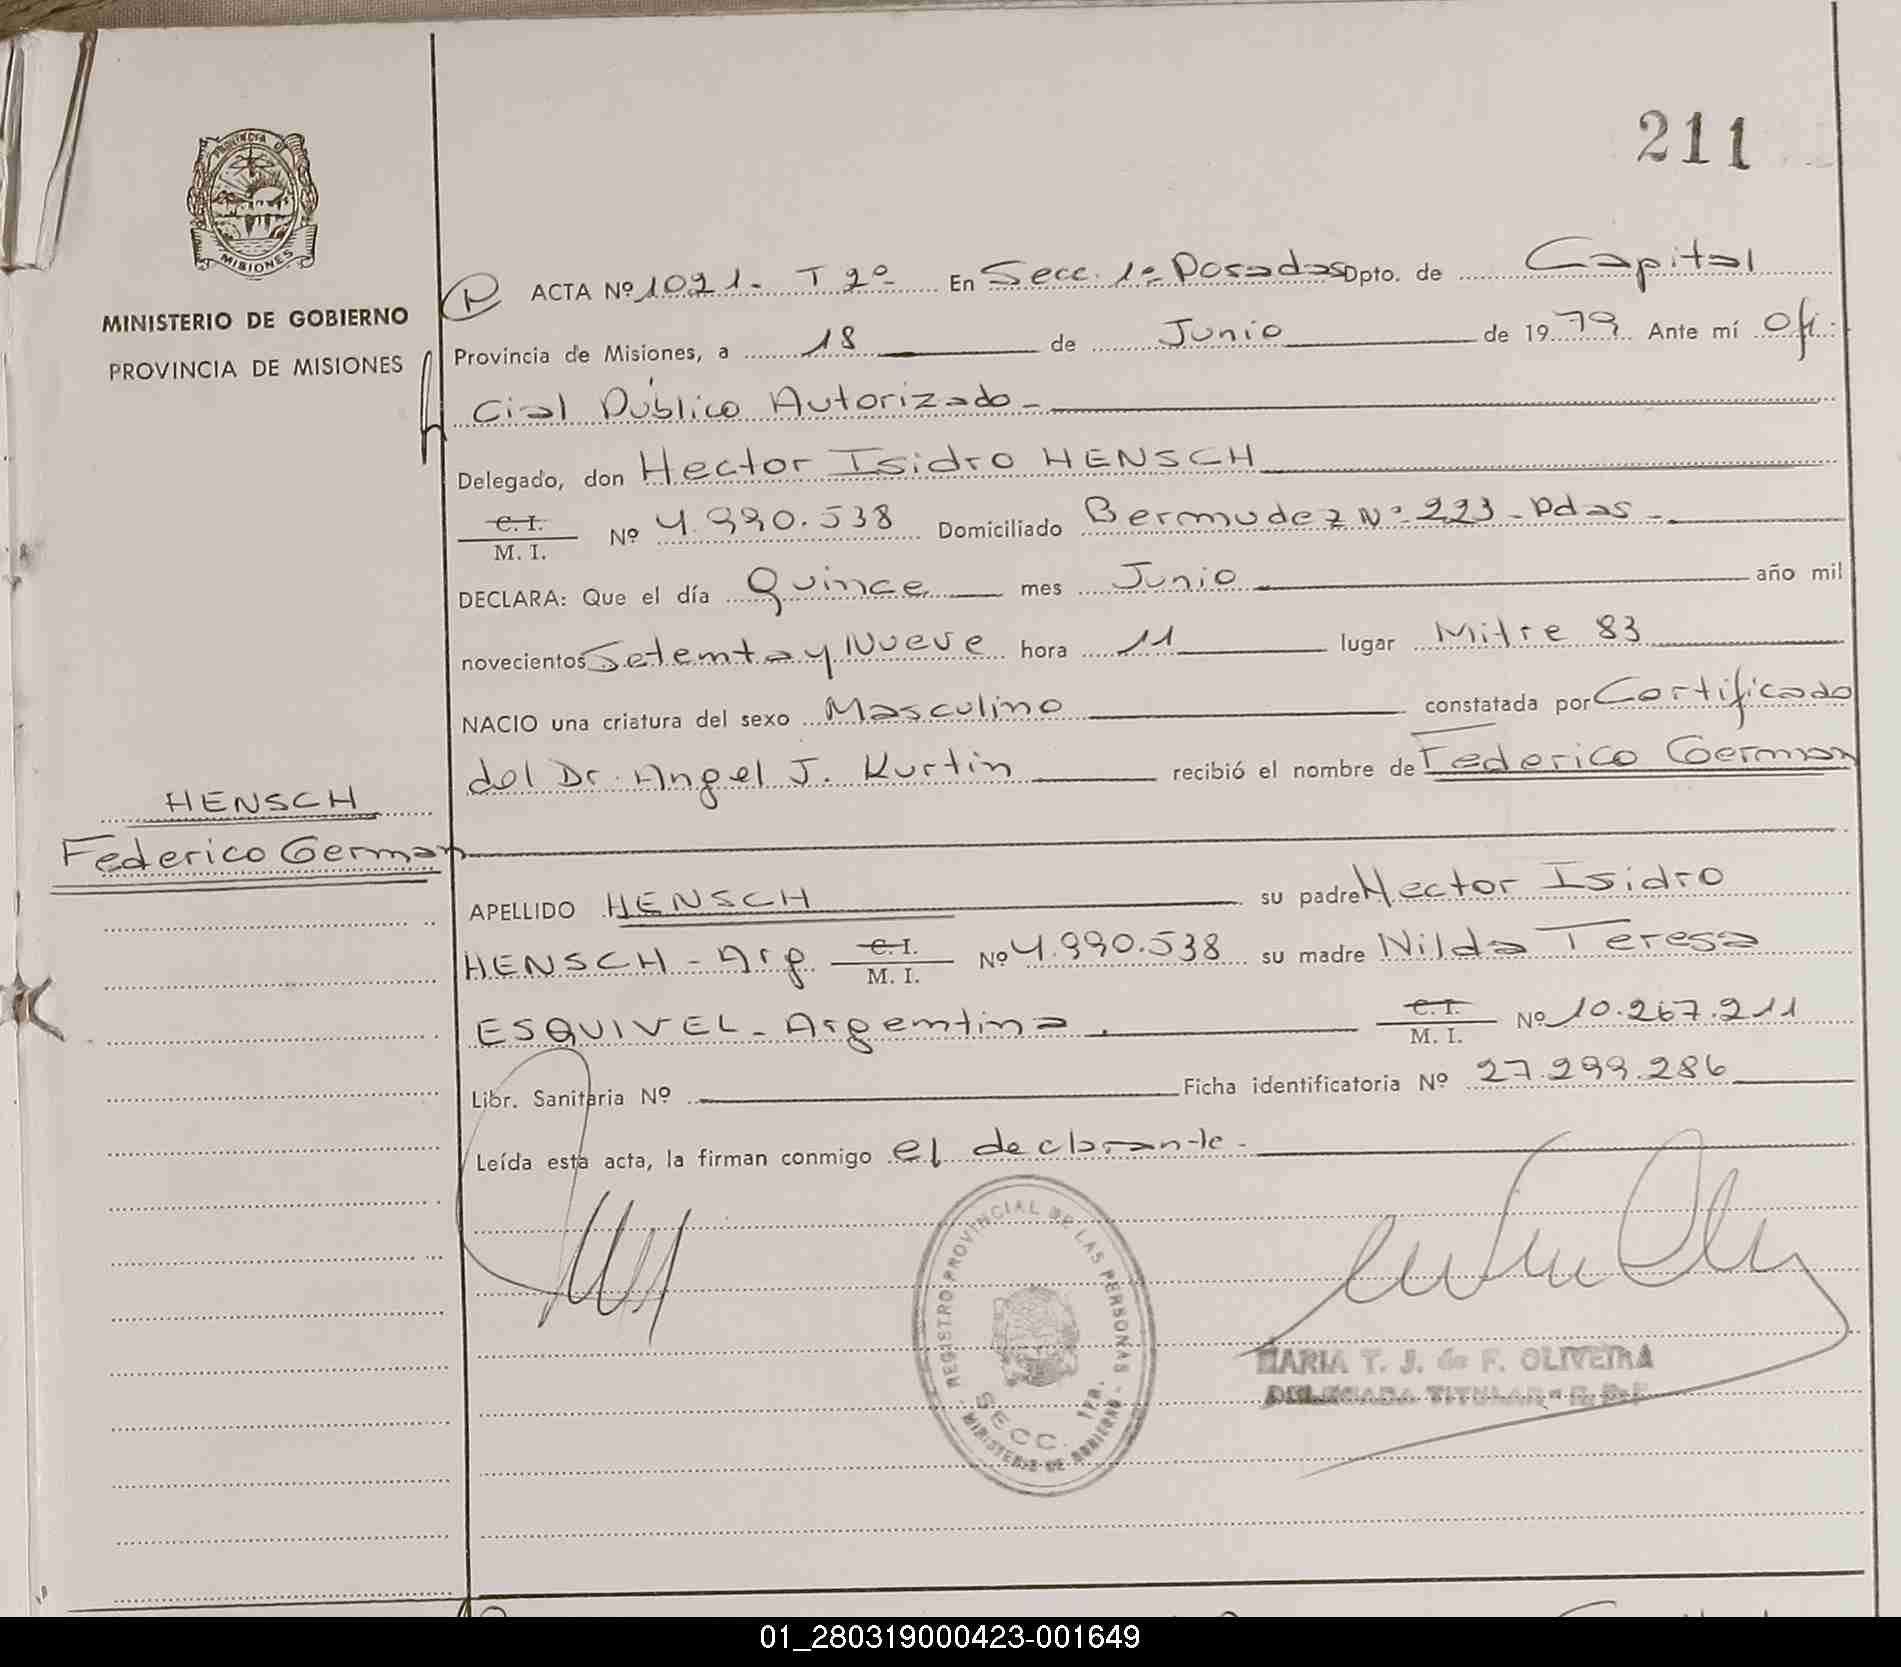 PROVINCIA DE
MISIONES
MINISTERIO DE GOBIERNO
PROVINCIA DE MISIONES
211
ACTA Nº 1021. T 2º En Secc. 1ª Posadas Dpto. de Capital
Provincia de Misiones, a 18 de Junio de 1979. Ante mí Ofi-
cial Público Autorizado-
Delegado, don Hector Isidro HENSCH
C. I.
M. I. Nº 4.990.538 Domiciliado Bermudez Nº 223-Pdas-
DECLARA: Que el día Quince mes Junio año mil
novecientos Setenta y Nueve hora 11 lugar Mitre 83
NACIO una criatura del sexo Masculino constatada por Certificado
del Dr. Angel J. Kurtin recibió el nombre de Federico German
HENSCH
Federico German
APELLIDO HENSCH su padre Hector Isidro
HENSCH - Arg C. I. M. I. Nº 4.990.538 su madre Nilda Teresa
ESQUIVEL - Argentina. C. I. M. I. Nº 10.267.211
Libr. Sanitaria Nº Ficha identificatoria Nº 27.299.286
Leída esta acta, la firman conmigo el declarante-
REGISTRO PROVINCIAL DE LAS PERSONAS - MINISTERIO DE GOBIERNO -
SECC. 1ra.
MARIA T. J. de F. OLIVEIRA
DELEGADA TITULAR - R. P. P.
01_280319000423-001649